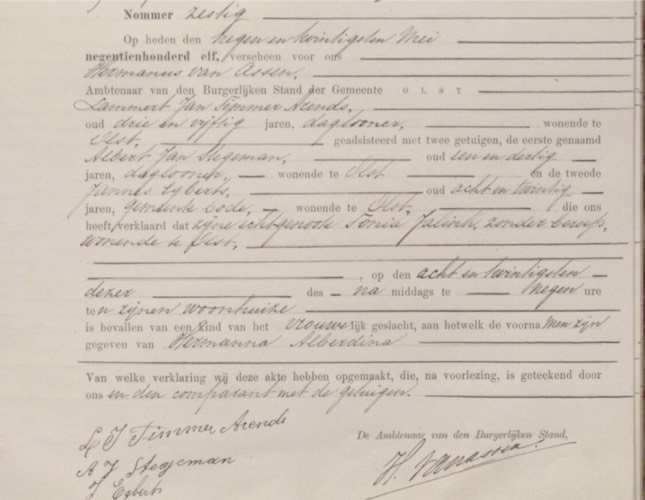 Nommer zestig
Op heden den negen en twintigsten Mei
negentienhonderd elf, verscheen voor ons
Hermanus van Assen,
Ambtenaar van den Burgerlijken Stand der Gemeente OLST
Lammert Jan Timmer Arends,
oud drie en vijftig jaren, daglooner, wonende te
Olst, geadsisteerd met twee getuigen, de eerste genaamd
Albert Jan Stegeman, oud een en dertig
jaren, daglooner, wonende te Olst en de tweede
Jannes Egberts, oud acht en twintig
jaren, gemeente bode, wonende te Olst, die ons
heeft verklaard dat zijne echtgenoote Tonia Jalink, zonder beroep,
wonende te Olst,
, op den acht en twintigsten
dezer des na middags te negen ure
ten zijnen woonhuize
is bevallen van een kind van het vrouwelijk geslacht, aan hetwelk de voornamen zijn
gegeven van Hermanna Alberdina
Van welke verklaring wij deze akte hebben opgemaakt, die, na voorlezing, is geteekend door
ons en den comparant met de getuigen.
L J Timmer Arends
De Ambtenaar van den Burgerlijken Stand,
A J Stegeman
H. van Assen.
J Egberts